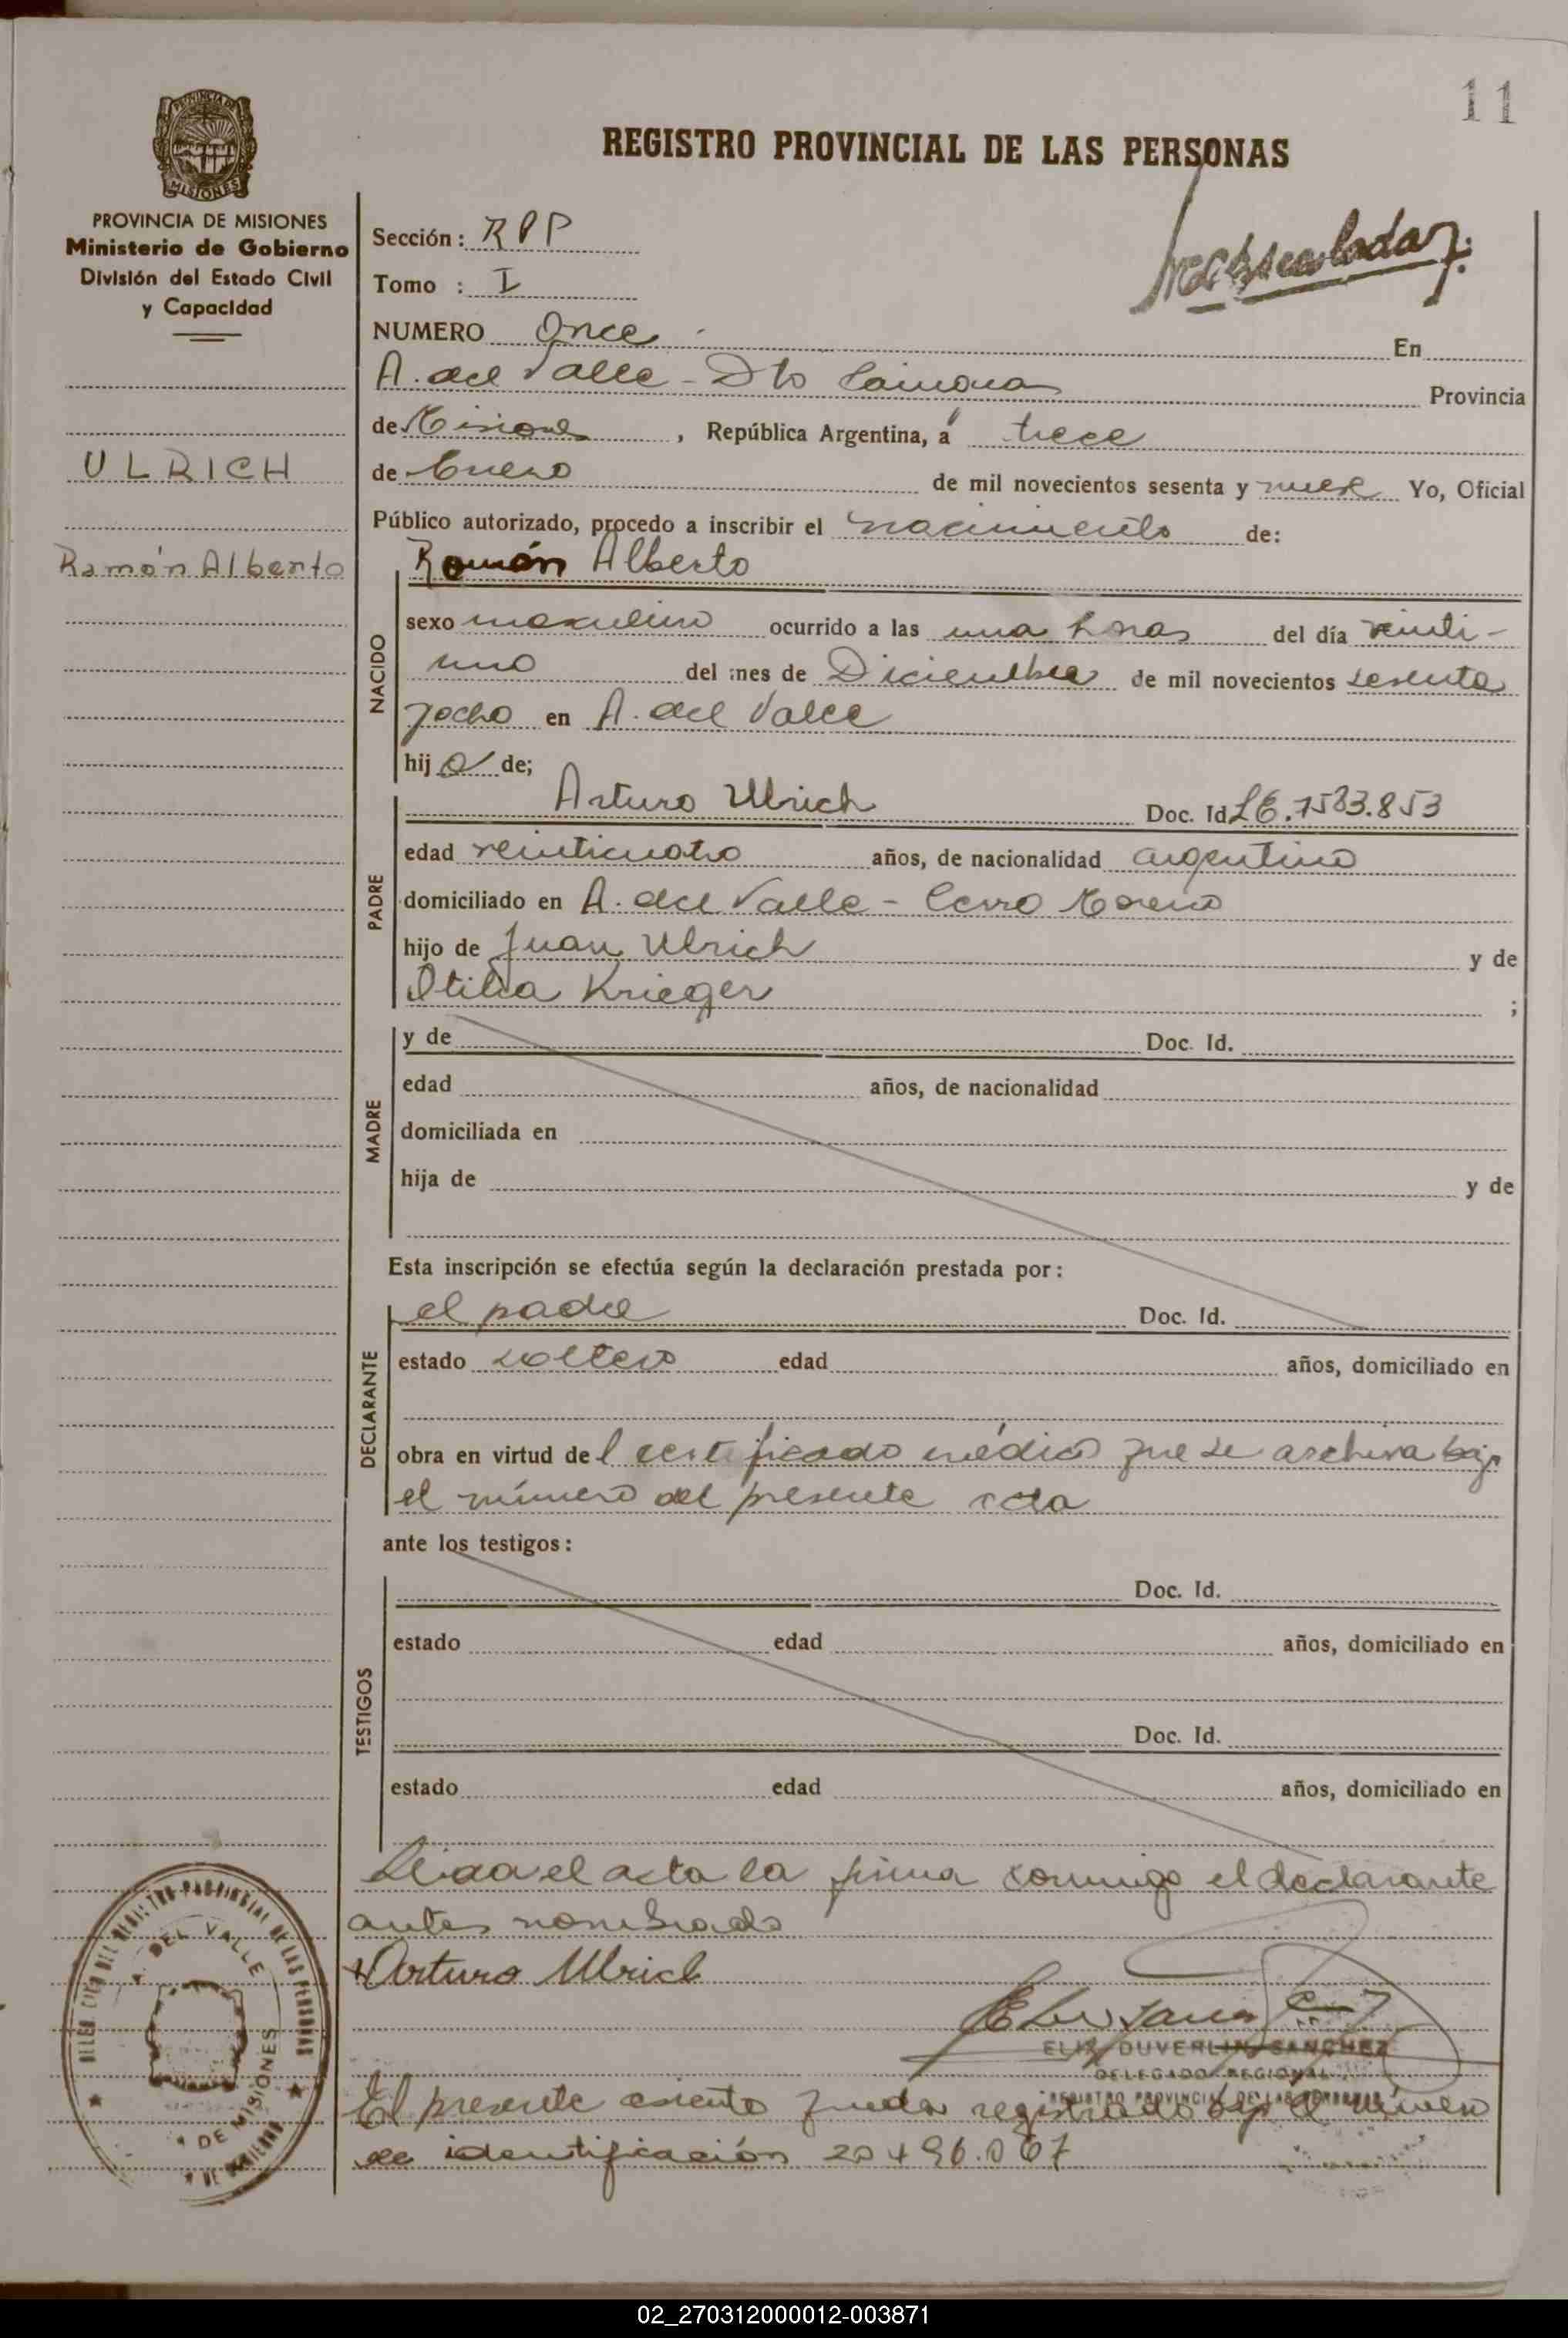 11
REGISTRO PROVINCIAL DE LAS PERSONAS
PROVINCIA DE
MISIONES
PROVINCIA DE MISIONES
Ministerio de Gobierno
División del Estado Civil
y Capacidad
ULRICH
Ramón Alberto
Sección: RPP
Tomo : I
NUMERO Once En
A. del Valle - Dto Cainguas Provincia
de Misiones, República Argentina, a trece
de Enero de mil novecientos sesenta y nueve Yo, Oficial
Público autorizado, procedo a inscribir el nacimiento de:
Ramón Alberto
NACIDO
sexo masculino ocurrido a las una horas del día veinti-
uno del mes de Diciembre de mil novecientos sesenta
y ocho en A. del Valle
hij o de;
PADRE
Arturo Ulrich Doc. Id LE.7583.853
edad veinticuatro años, de nacionalidad argentino
domiciliado en A. del Valle - Cerro Moreno
hijo de Juan Ulrich y de
Otilia Krieger ;
MADRE
y de Doc. Id.
edad años, de nacionalidad
domiciliada en
hija de y de
Esta inscripción se efectúa según la declaración prestada por:
DECLARANTE
el padre Doc. Id.
estado soltero edad años, domiciliado en
obra en virtud del certificado médico que se archiva bajo
el número del presente acta
ante los testigos:
TESTIGOS
Doc. Id.
estado edad años, domiciliado en
Doc. Id.
estado edad años, domiciliado en
Leida el acta la firma conmigo el declarante
antes nombrado
Arturo Ulrich
DEL REGISTRO PROVINCIAL DE LAS PERSONAS
DEL VALLE
DE MISIONES
DUVERLIN SANCHEZ
DELEGADO REGIONAL
REGISTRO PROVINCIAL DE LAS PERSONAS
El presente asiento queda registrado bajo el número
de identificación 20496.067
02_270312000012-003871